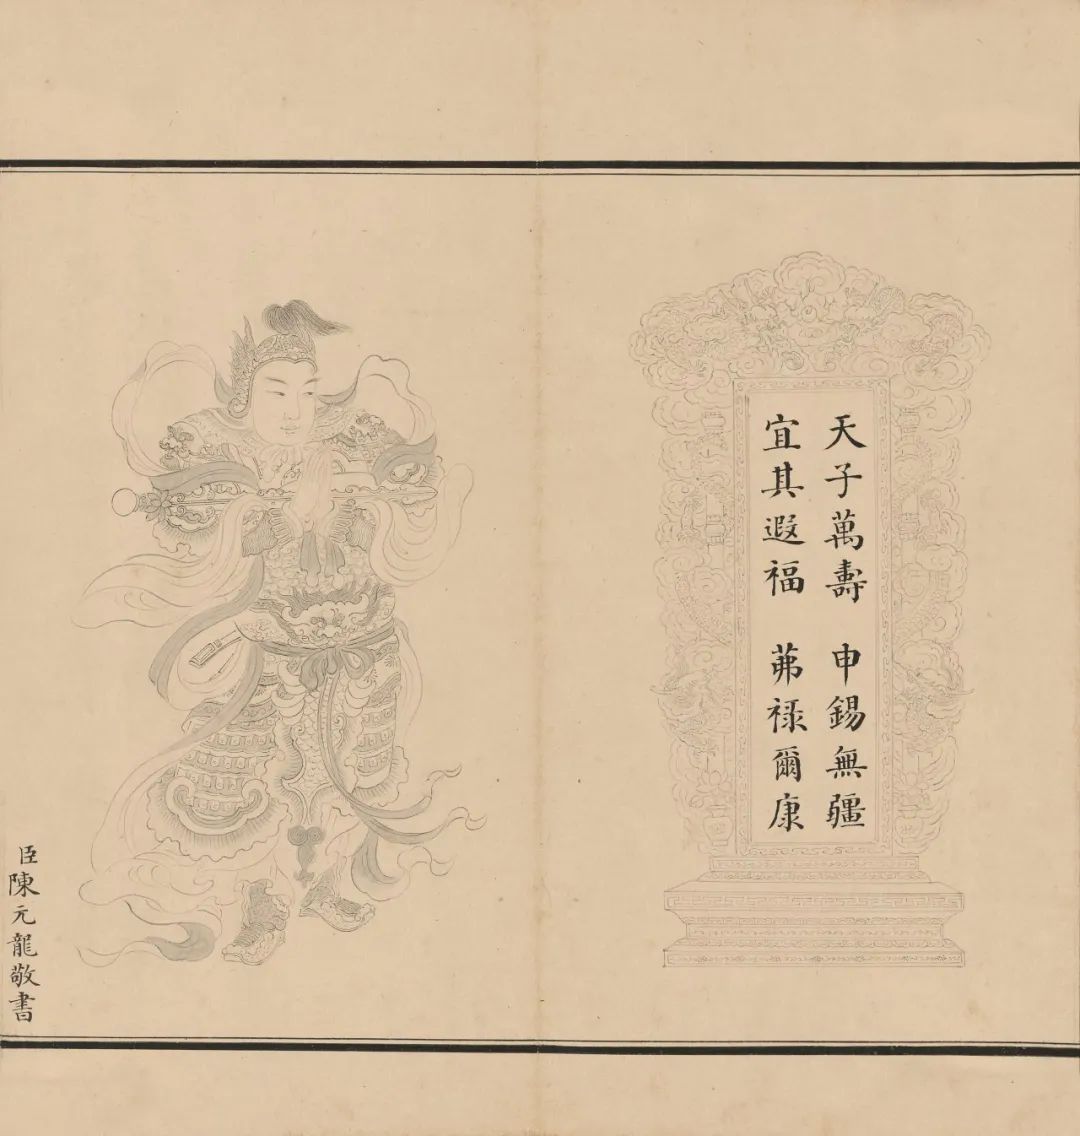 天子萬壽 申錫無疆
宜其遐福 茀祿爾康
臣陳元龍敬書